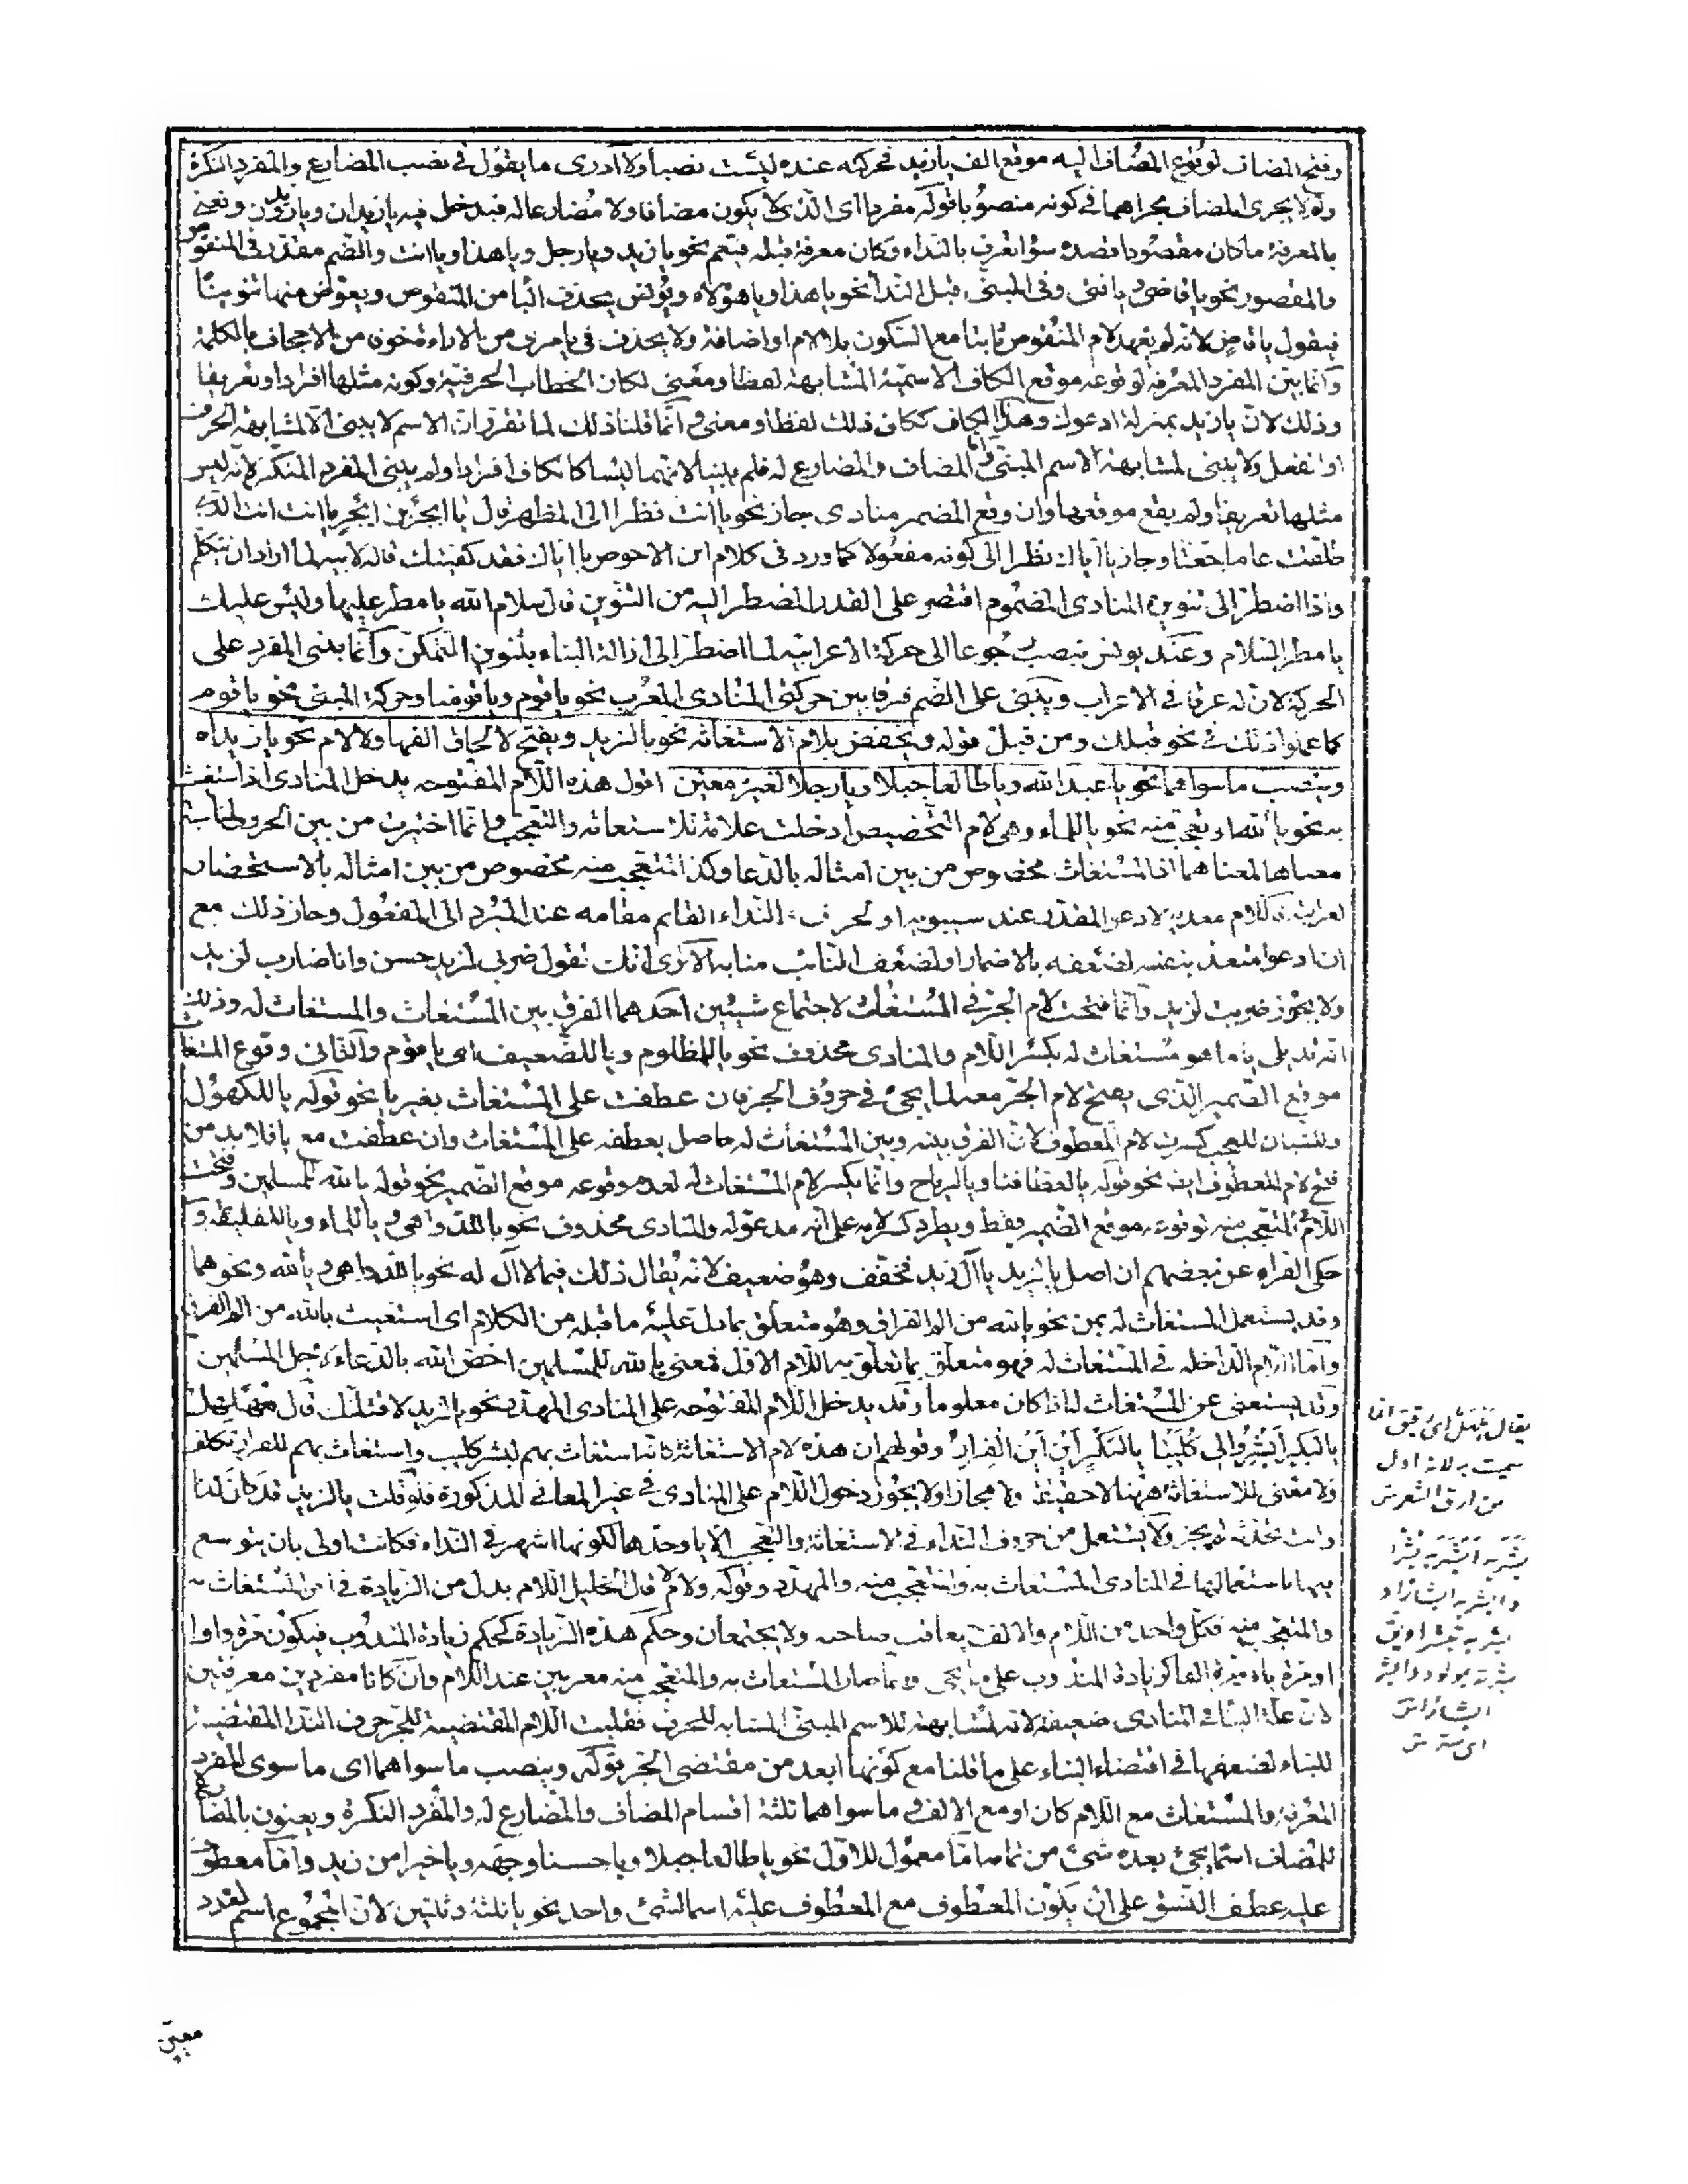 وفتح المضاف لوقوع المضاف اليه موقع الف يا زيد فحركته عنده ليست نصبا ولا ادرى ما يقول فى نصب المضارع والمفرد النكرة
ولم لا يجرى المضاف مجراهما فى كونه منصوبا قوله مفردا اى الذى لا يكون مضافا ولا مضارعا له فيدخل فيه يا زيدان ويا زيدون ونعنى
بالمعرفة ما كان مقصودا قصده سوا تعرف بالنداء او كان معرفة قبله فيعم نحو يا زيد ويا رجل ويا هذا ويا انت والضم مقدر فى المنقوص
والمقصور نحو يا قاضى ويا فتى وفى المبنى قبل الندا نحو يا هذا ويا هؤلاء ويونس يحذف اليا من المنقوص ويعوض منها تنوينا
فيقول يا قاض لانه لم يعهد لام المنقوص ثابتا مع السكون بلا لام او اضافة ولا يحذف فى يا مرى من الاراءة خوفا من الاجحاف بالكلمة
وانما بنى المفرد المعرفة لوقوعه موقع الكاف الاسمية المشابهة لفظا ومعنى لكاف الخطاب الحرفية وكونه مثلها افرادا وتعريفا
وذلك لان يا زيد بمنزلة ادعوك وهذا الكاف ككاف ذلك لفظا ومعنى وانما قلنا ذلك لما تقرر ان الاسم لا يبنى الا لمشابهة الحرف
او الفعل ولا يبنى لمشابهة الاسم المبنى واما المضاف والمضارع له فلم يبنيا لانهما ليسا كالكاف افرادا ولم يبنى المفرد المنكر لانه ليس
مثلها تعريفا ولم يقع موقعها وان وقع المضمر منادى جاز نحو يا انت نظرا الى المظهر قال يا ابجر بن ابجر يا انت انت الذى
طلقت عام جعتا وجاز يا اياك نظرا الى كونه مفعولا كما ورد فى كلام ابن الاحوص يا اياك فقد كفيتك قاله لابيه لما اراد ان يتكلم
واذا اضطر الى تنوين المنادى المضموم اقتصر على القدر المضطر اليه من التنوين قال سلام الله يا مطر عليها وليس عليك
يا مطر السلام وعند يونس ينصب رجوعا الى حركة الاعرابية لما اضطر الى ازالة البناء بتنوين التمكن وانما بنى المفرد على
الحركة لان له عرقا فى الاعراب وبنى على الضم فرقا بين حركتى المنادى المعرب نحو يا قوم ويا قومنا وحركة المبنى نحو يا قوم
كما عملوا ذلك فى نحو قبلك ومن قبل قوله ويخفض بلام الاستغاثة نحو يا لزيد ويفتح لالحاق الفها ولا لام نحو يا زيداه
وينصب ما سواهما نحو يا عبد الله ويا طالعا جبلا ويا رجلا لغير معين اقول هذه اللام المفتوحه يدخل المنادى اذا استغيث
به نحو يا لله او تعجب منه نحو يا للماء وهى لام التخصيص ادخلت علامة للاستغاثه والتعجب وانما اختيرت من بين الحروف لمناسبة
معناها لمعناهما اذ المستغاث مخصوص من بين امثاله بالدعا وكذا المتعجب منه مخصوص من بين امثاله بالاستحضار
لغرابته فاللام معديه لادعو المقدر عند سيبويه او لحرف النداء القايم مقامه عند المبرد الى المفعول وجاز ذلك مع
ان ادعوا متعد بنفسه لضعفه بالاضمار او لضعف النائب منابه الا ترى انك تقول ضربى لزيد حسن وانا ضارب لزيد
ولا يجوز ضربت لزيد وانما فتحت لام الجر فى المستغاث لاجتماع شيئين احدهما الفرق بين المستغاث والمستغاث له وذلك
انه قد يلى يا ما هو مستغاث له بكسر اللام والمنادى محذوف نحو يا للمظلوم ويا للضعيف اى يا قوم والثانى وقوع المستغاث
موقع الضمير الذى يفتح لام الجر معه لما يجئ فى حروف الجر فان عطفت على المستغاث بغير يا نحو قوله يا للكهول
وللشبان للعجب كسرت لام المعطوف لان الفرق بينه وبين المستغاث له حاصل بعطفه على المستغاث وان عطفت مع يا فلا بد من
فتح لام المعطوف ايضا نحو قوله يا لعطافنا ويا لرياح وانما يكسر لام المستغاث له لعدم وقوعه موقع الضمير نحو قوله يا لله للمسلمين وفتحت
اللام المتعجب منه لوقوعه موقع الضمير فقط ويطرد كسر لامه على انه مدعو له والمنادى محذوف نحو يا للدواهى ويا للماء ويا للفليقه و
حكى الفراء عن بعضهم ان اصل يا لزيد يا آل زيد فخفف وهو ضعيف لانه يقال ذلك فيما لا آل له نحو يا للدواهى ويا لله ونحوهما
وقد يستعمل المستغاث له بمن نحو يا لله من الم الفراق وهو متعلق بما دل عليه ما قبله من الكلام اى استغيث بالله من الم الفراق
واما اللام الداخله فى المستغاث له فهو متعلق بما تعلق به اللام الاول فمعنى يا لله للمسلمين اخص الله بالدعاء لاجل المسلمين
وقد يستغنى عن المستغاث له اذا كان معلوما وقد يدخل اللام المفتوحه على المنادى المهدد نحو يا لزيد لاقتلنك قال مهلهل
يا لبكر انشروا لى كليبا يا لبكر اين اين الفرار وقولهم ان هذه لام الاستغاثة كانه استغاث بهم لنشر كليب واستغاث بهم للفرار تكلف
ولا معنى للاستغاثه ههنا لا حقيقة ولا مجازا ولا يجوز دخول اللام على المنادى فى غير المعانى المذكورة فلو قلت يا لزيد قد كان كذا
وانت تحدثه لم يجز ولا يستعمل من حروف النداء فى الاستغاثة والتعجب الا يا وحدها لكونها اشهر فى النداء فكانت اولى بان يتوسع
فيها باستعمالها فى المنادى المستغاث به والمتعجب منه والمهدد وقوله ولا لام قال الخليل اللام بدل من الزيادة فى آخر المستغاث به
والمتعجب منه فكل واحد من اللام والالف يعاقب صاحبه ولا يجتمعان وحكم هذه الزيادة كحكم زيادة المندوب فيكون مرة واوا
او مرة ياء ومرة الفا كزيادة المندوب على ما يجى وانما صار المستغاث به والمتعجب منه معربين عند اللام وان كانا مفردين معرفتين
لان علة البنا فى المنادى ضعيفة لانه لمشابهته للاسم المبنى المشابه للحرف فغلبت اللام المقتضية للجر حرف الندا المقتضية
للبناء لضعفها فى اقتضاء البناء على ما قلنا مع كونها ابعد من مقتضى الجر قوله وينصب ما سواهما اى ما سوى المفرد
المعرفة والمستغاث مع اللام كان او مع الالف وما سواهما ثلثة اقسام المضاف والمضارع له والمفرد النكرة ويعنون بالمضارع
للمضاف اسما يجئ بعده شئ من تمامه اما معمول للاول نحو يا طالعا جبلا ويا حسنا وجهه ويا خيرا من زيد واما معطوف
عليه عطف النسق على ان يكون المعطوف مع المعطوف عليه اسما لشئ واحد نحو يا ثلثة وثلثين لان المجموع اسم لعدد
يقال هلهل اى رقق انما
سميت به لانه اول
من ارق الشعر
معين